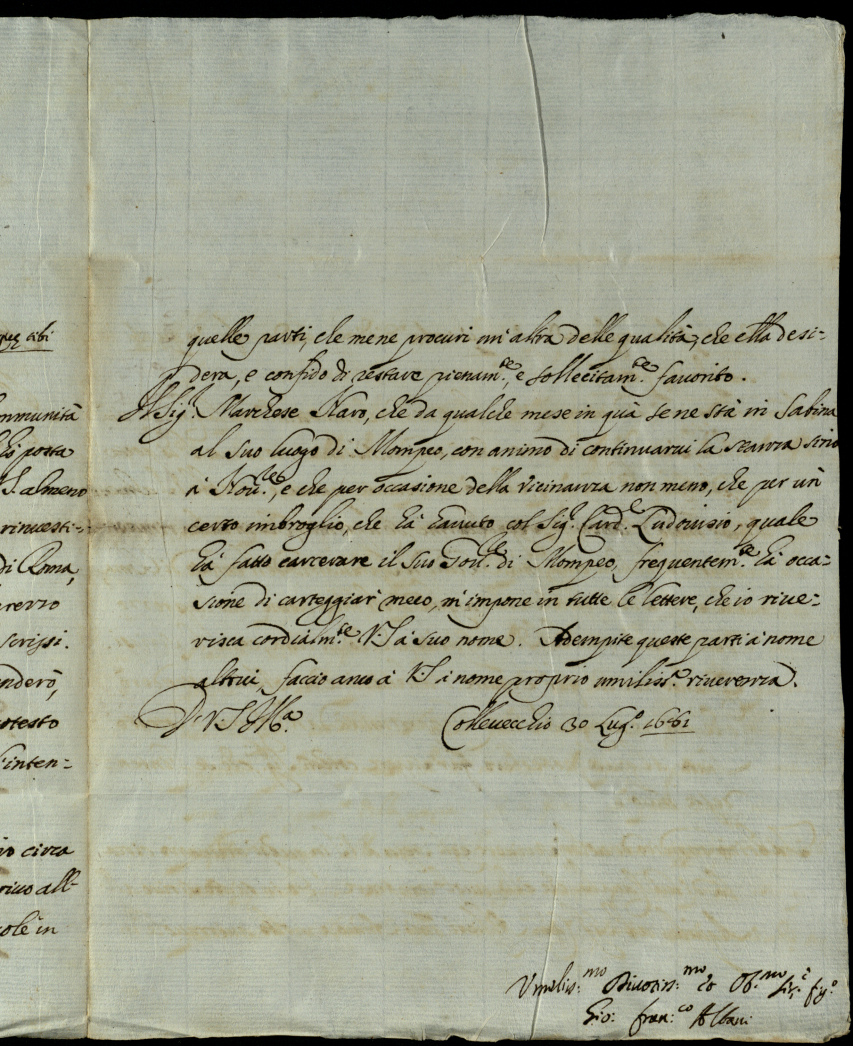 quez tibi
ommunità
hà posta
V.S. almeno
rinvesti=
di Roma,
prezzo
scrissi.
nderò,
otesto
s'inten=
vo circa
rivo all-
cole in
quelle parti, che me ne procuri un'altra delle qualità, che ella desi=
dera, e confido di restare pienam.te, e sollecitam.te favorito.
Il Sig.r Marchese Naro, che da qualche mese in quà se ne stà in Sabina
al suo luogo di Mompeo, con animo di continuarvi la stanza sino
à Nov.bre, e che per occasione della vicinanza non meno, che per un
certo imbroglio, che hà havuto col Sig.r Card.le Ludovisio, quale
hà fatto carcerare il suo Gov.re di Mompeo, frequentem.te hà occa=
sione di carteggiar meco, m'impone in tutte le lettere, che io rive=
risca cordialm.te V.S. à suo nome. Adempite queste parti à nome
altrui, faccio anco à V.S. à nome proprio umiliss.a riverenza.
Di V.S. Ill.ma
Collevecchio 30 Lug.o 1661
Umiliss:mo Divotiss:mo ed Ob:mo Ser.e
Gio: Fran:co Albani